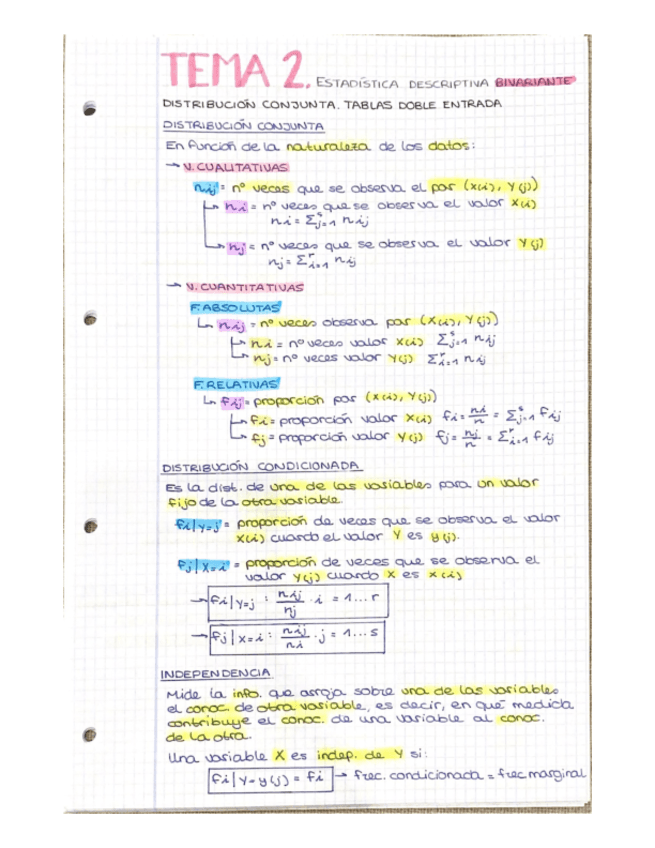 TEMA 2. ESTADÍSTICA DESCRIPTIVA BIVARIANTE
DISTRIBUCIÓN CONJUNTA. TABLAS DOBLE ENTRADA
DISTRIBUCIÓN CONJUNTA
En función de la naturaleza de los datos:
→ V. CUALITATIVAS
nij = nº veces que se observa el par (x(i), Y(j))
ni = nº veces que se observa el valor x(i)
ni = Σˢj=1 nij
nj = nº veces que se observa el valor Y(j)
nj = Σʳi=1 nij
→ V. CUANTITATIVAS
F. ABSOLUTAS
nij = nº veces observa par (x(i), Y(j))
ni = nº veces valor x(i) Σˢj=1 nij
nj = nº veces valor Y(j) Σʳi=1 nij
F. RELATIVAS
fij = proporción par (x(i), Y(j))
fi = proporción valor x(i) fi = ni/n = Σˢj=1 fij
fj = proporción valor Y(j) fj = nj/n = Σʳi=1 fij
DISTRIBUCIÓN CONDICIONADA
Es la dist. de una de las variables para un valor
fijo de la otra variable.
fi|Y=j = proporción de veces que se observa el valor
x(i) cuando el valor Y es y(j).
fj|X=i = proporción de veces que se observa el
valor Y(j) cuando X es x(i)
→ fi|Y=j : nij/nj · i = 1...r
→ fj|X=i : nij/ni · j = 1...s
INDEPENDENCIA
Mide la info. que arroja sobre una de las variables
el conoc. de otra variable, es decir, en qué medida
contribuye el conoc. de una variable al conoc.
de la otra.
Una variable X es indep. de Y si:
fi|Y=y(j) = fi → frec. condicionada = frec marginal